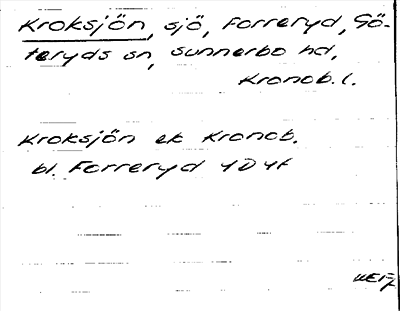 Kroksjön, sjö, Forreryd, Gö-
teryds sn, Sunnerbo hd,
Kronob. l.
Kroksjön ek Kronob.
bl. Forreryd 4D4f